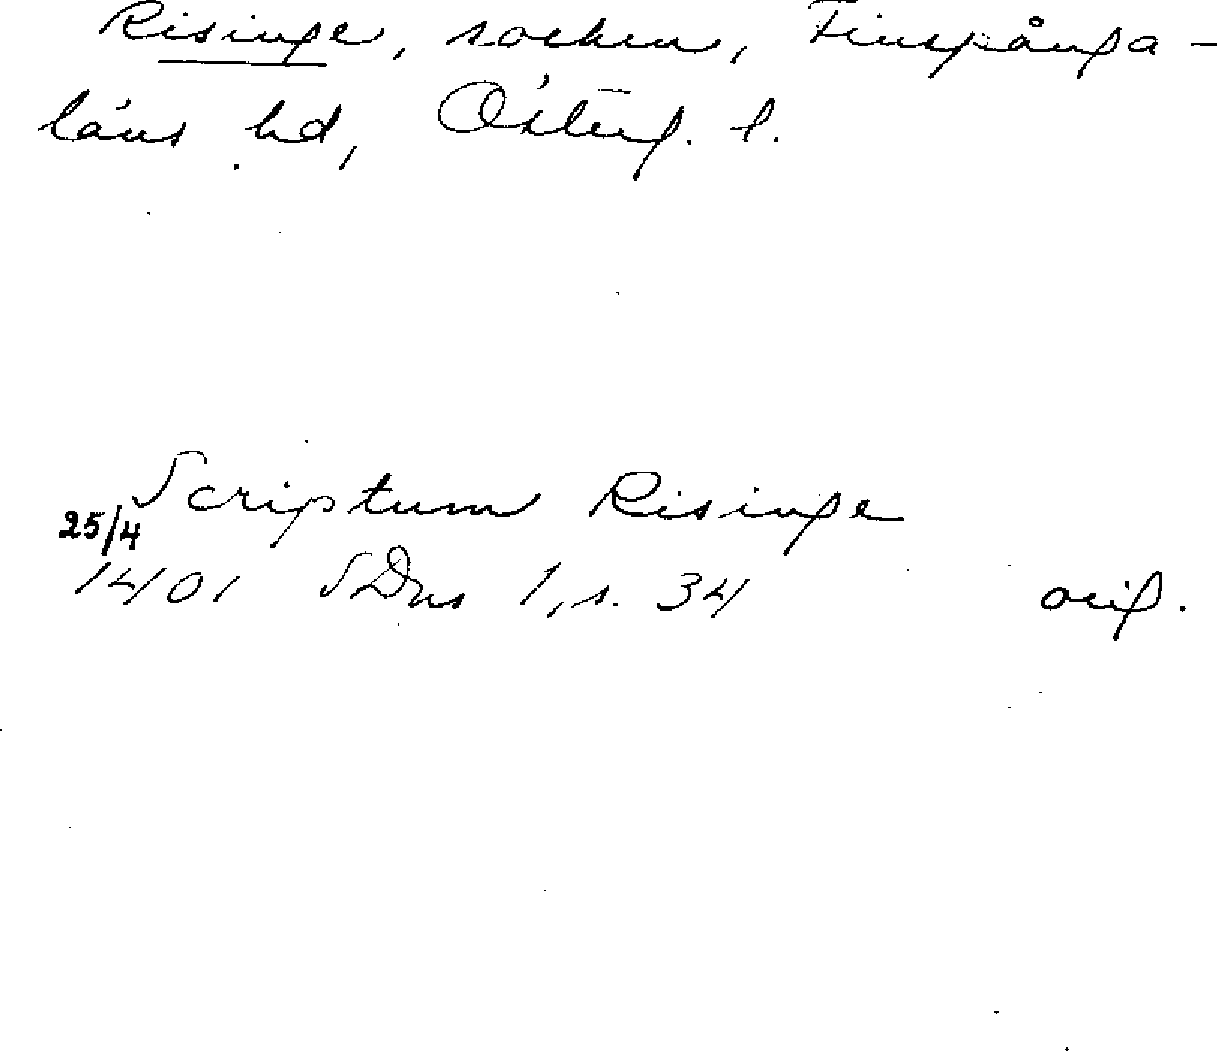 Risinge, socken, Finspånga-
läns hd, Österg. l.
Scriptum Risinge
25/4
1401 SDns 1, s. 34 orig.